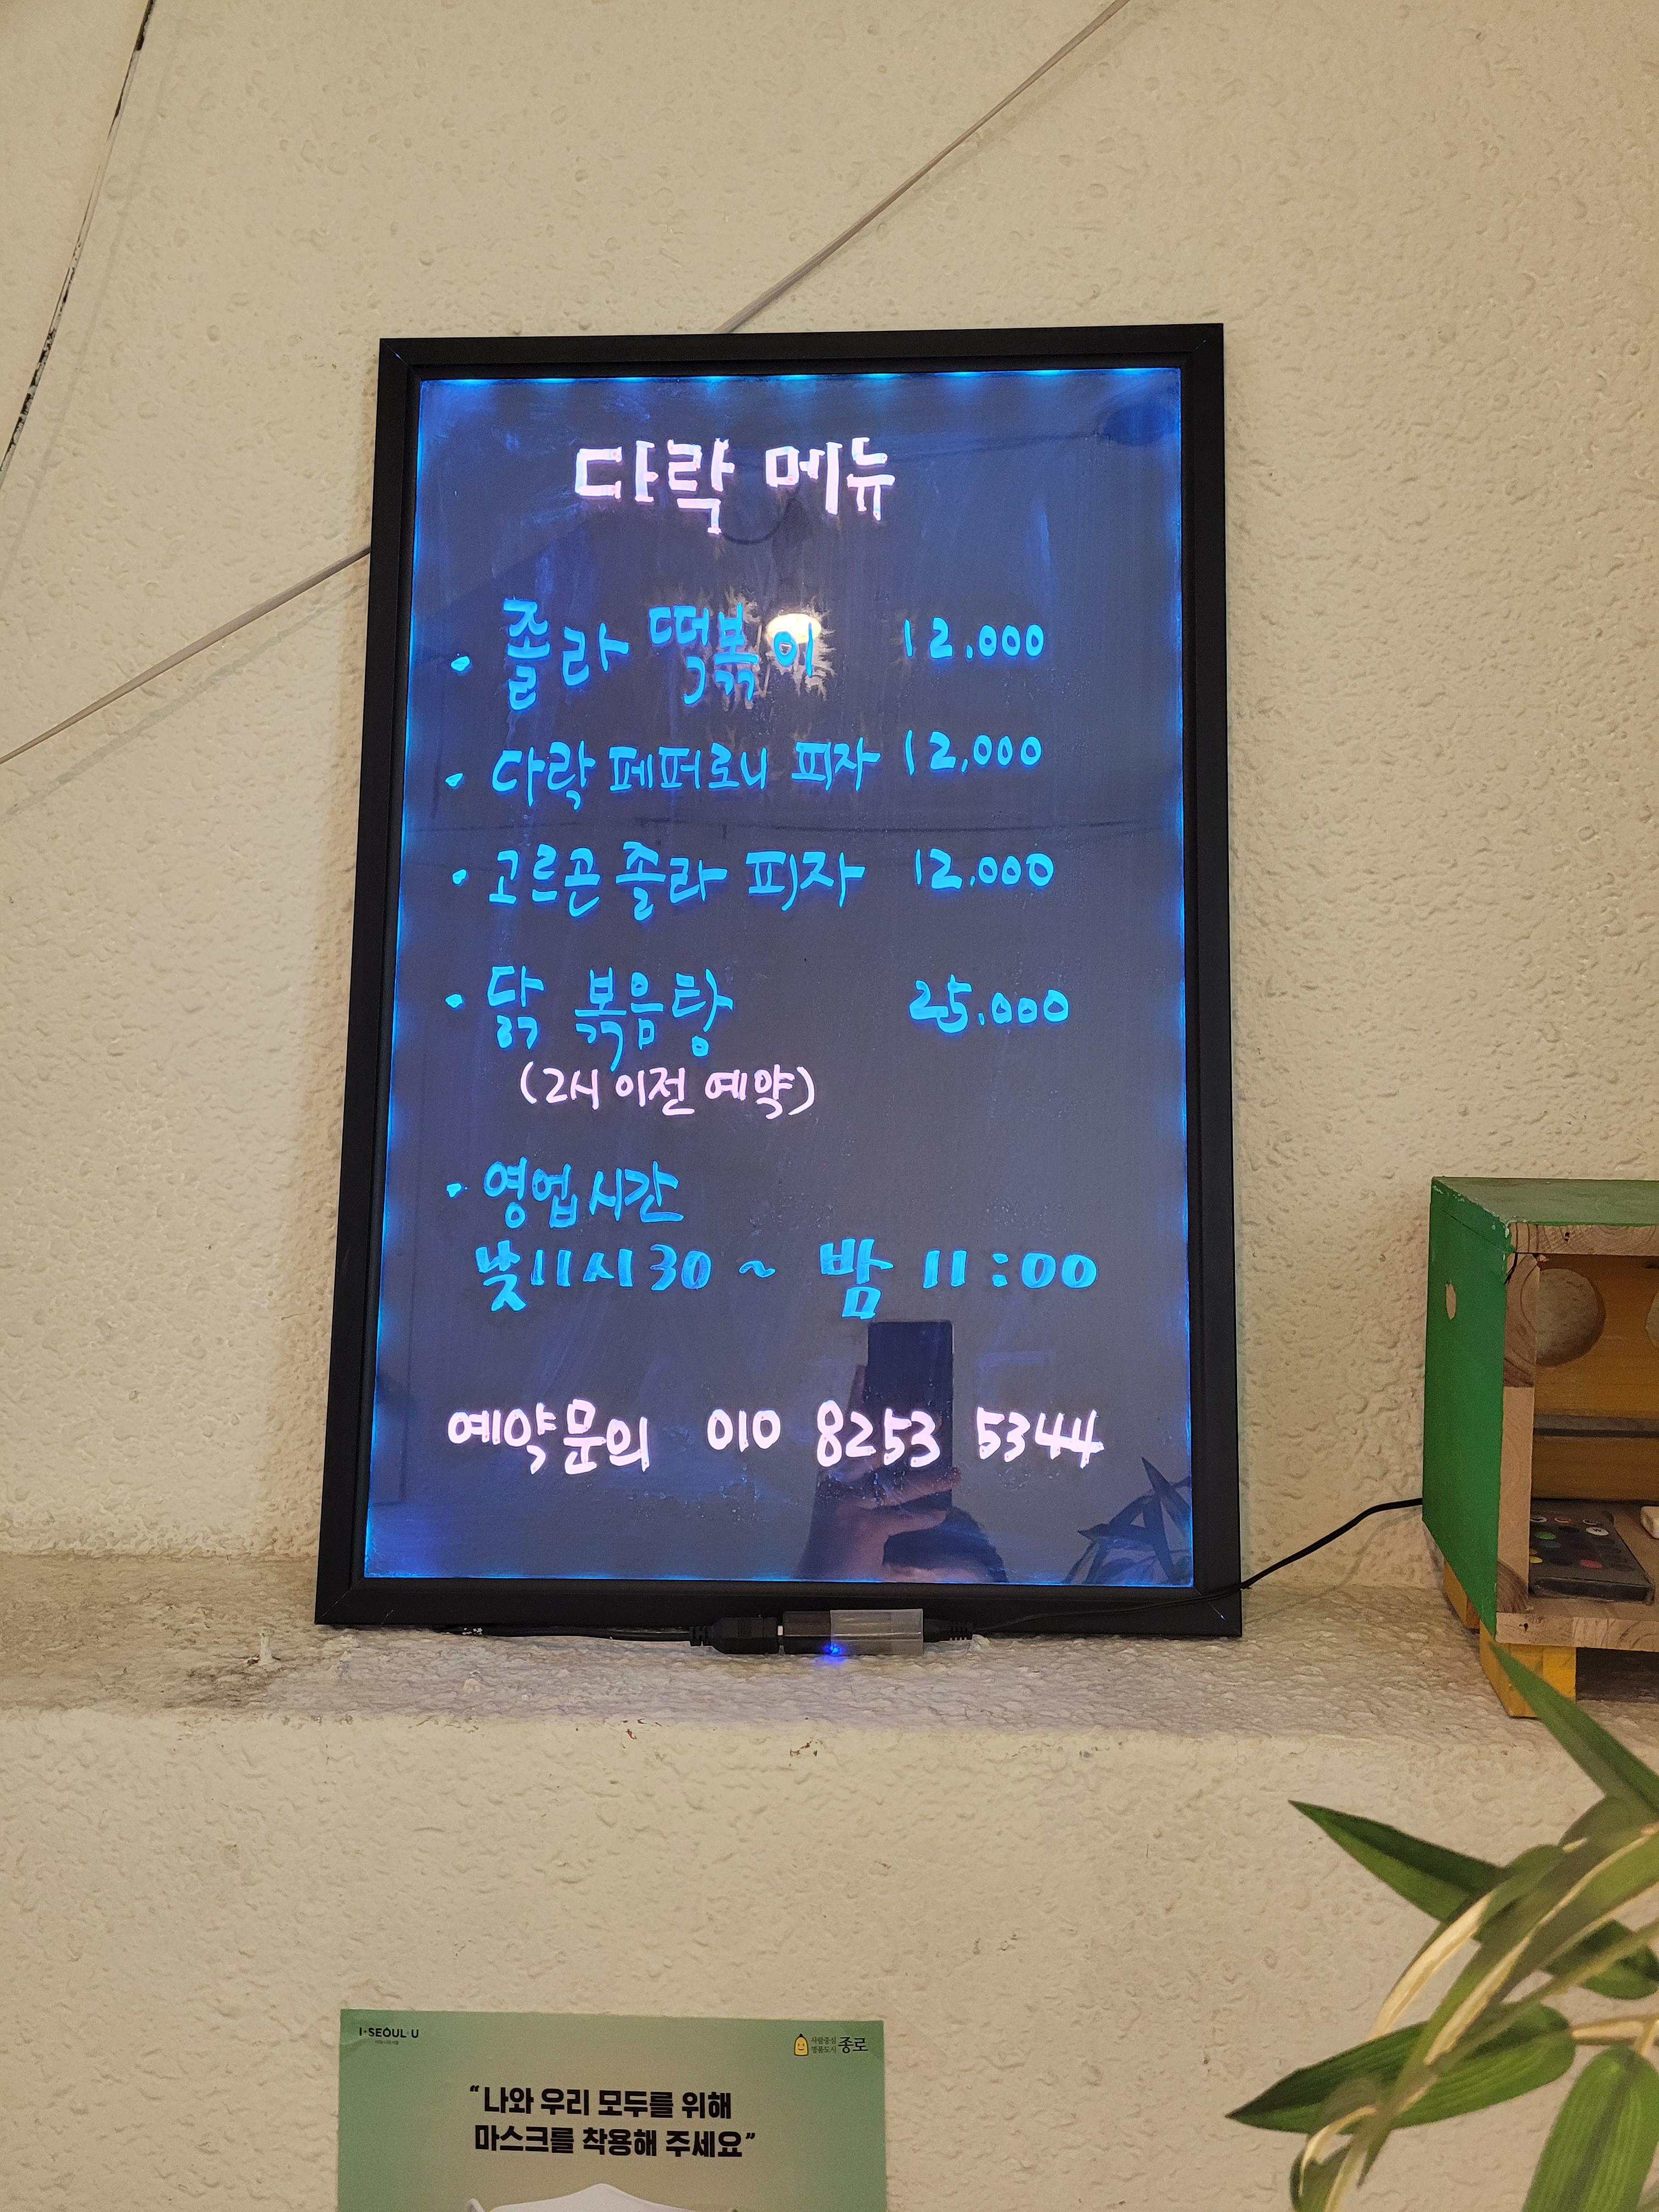 다락 메뉴
· 졸라 떡볶이 12.000
· 다락 페퍼로니 피자 12.000
· 고르곤졸라 피자 12.000
· 닭 볶음탕 25.000
(2시 이전 예약)
· 영업시간
낮11시30 ~ 밤 11:00
예약문의 010 8253 5344
I·SEOUL·U
사람중심
명품도시 종로
"나와 우리 모두를 위해
마스크를 착용해 주세요"